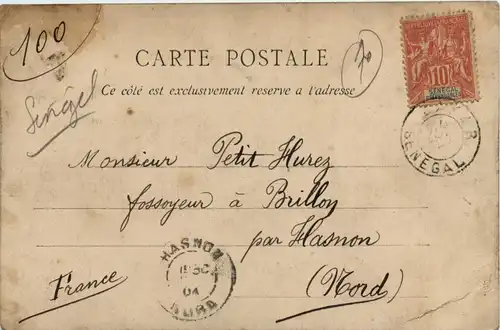 100
10
RÉPUBLIQUE FRANÇAISE
10c
SÉNÉGAL
CARTE POSTALE
Ce côté est exclusivement reserve a l'adresse
Sénégal
SÉNÉGAL
Monsieur Petit Hurez
fossoyeur à Brillon
par Hasnon
(Nord)
France
HASNON
04
NORD